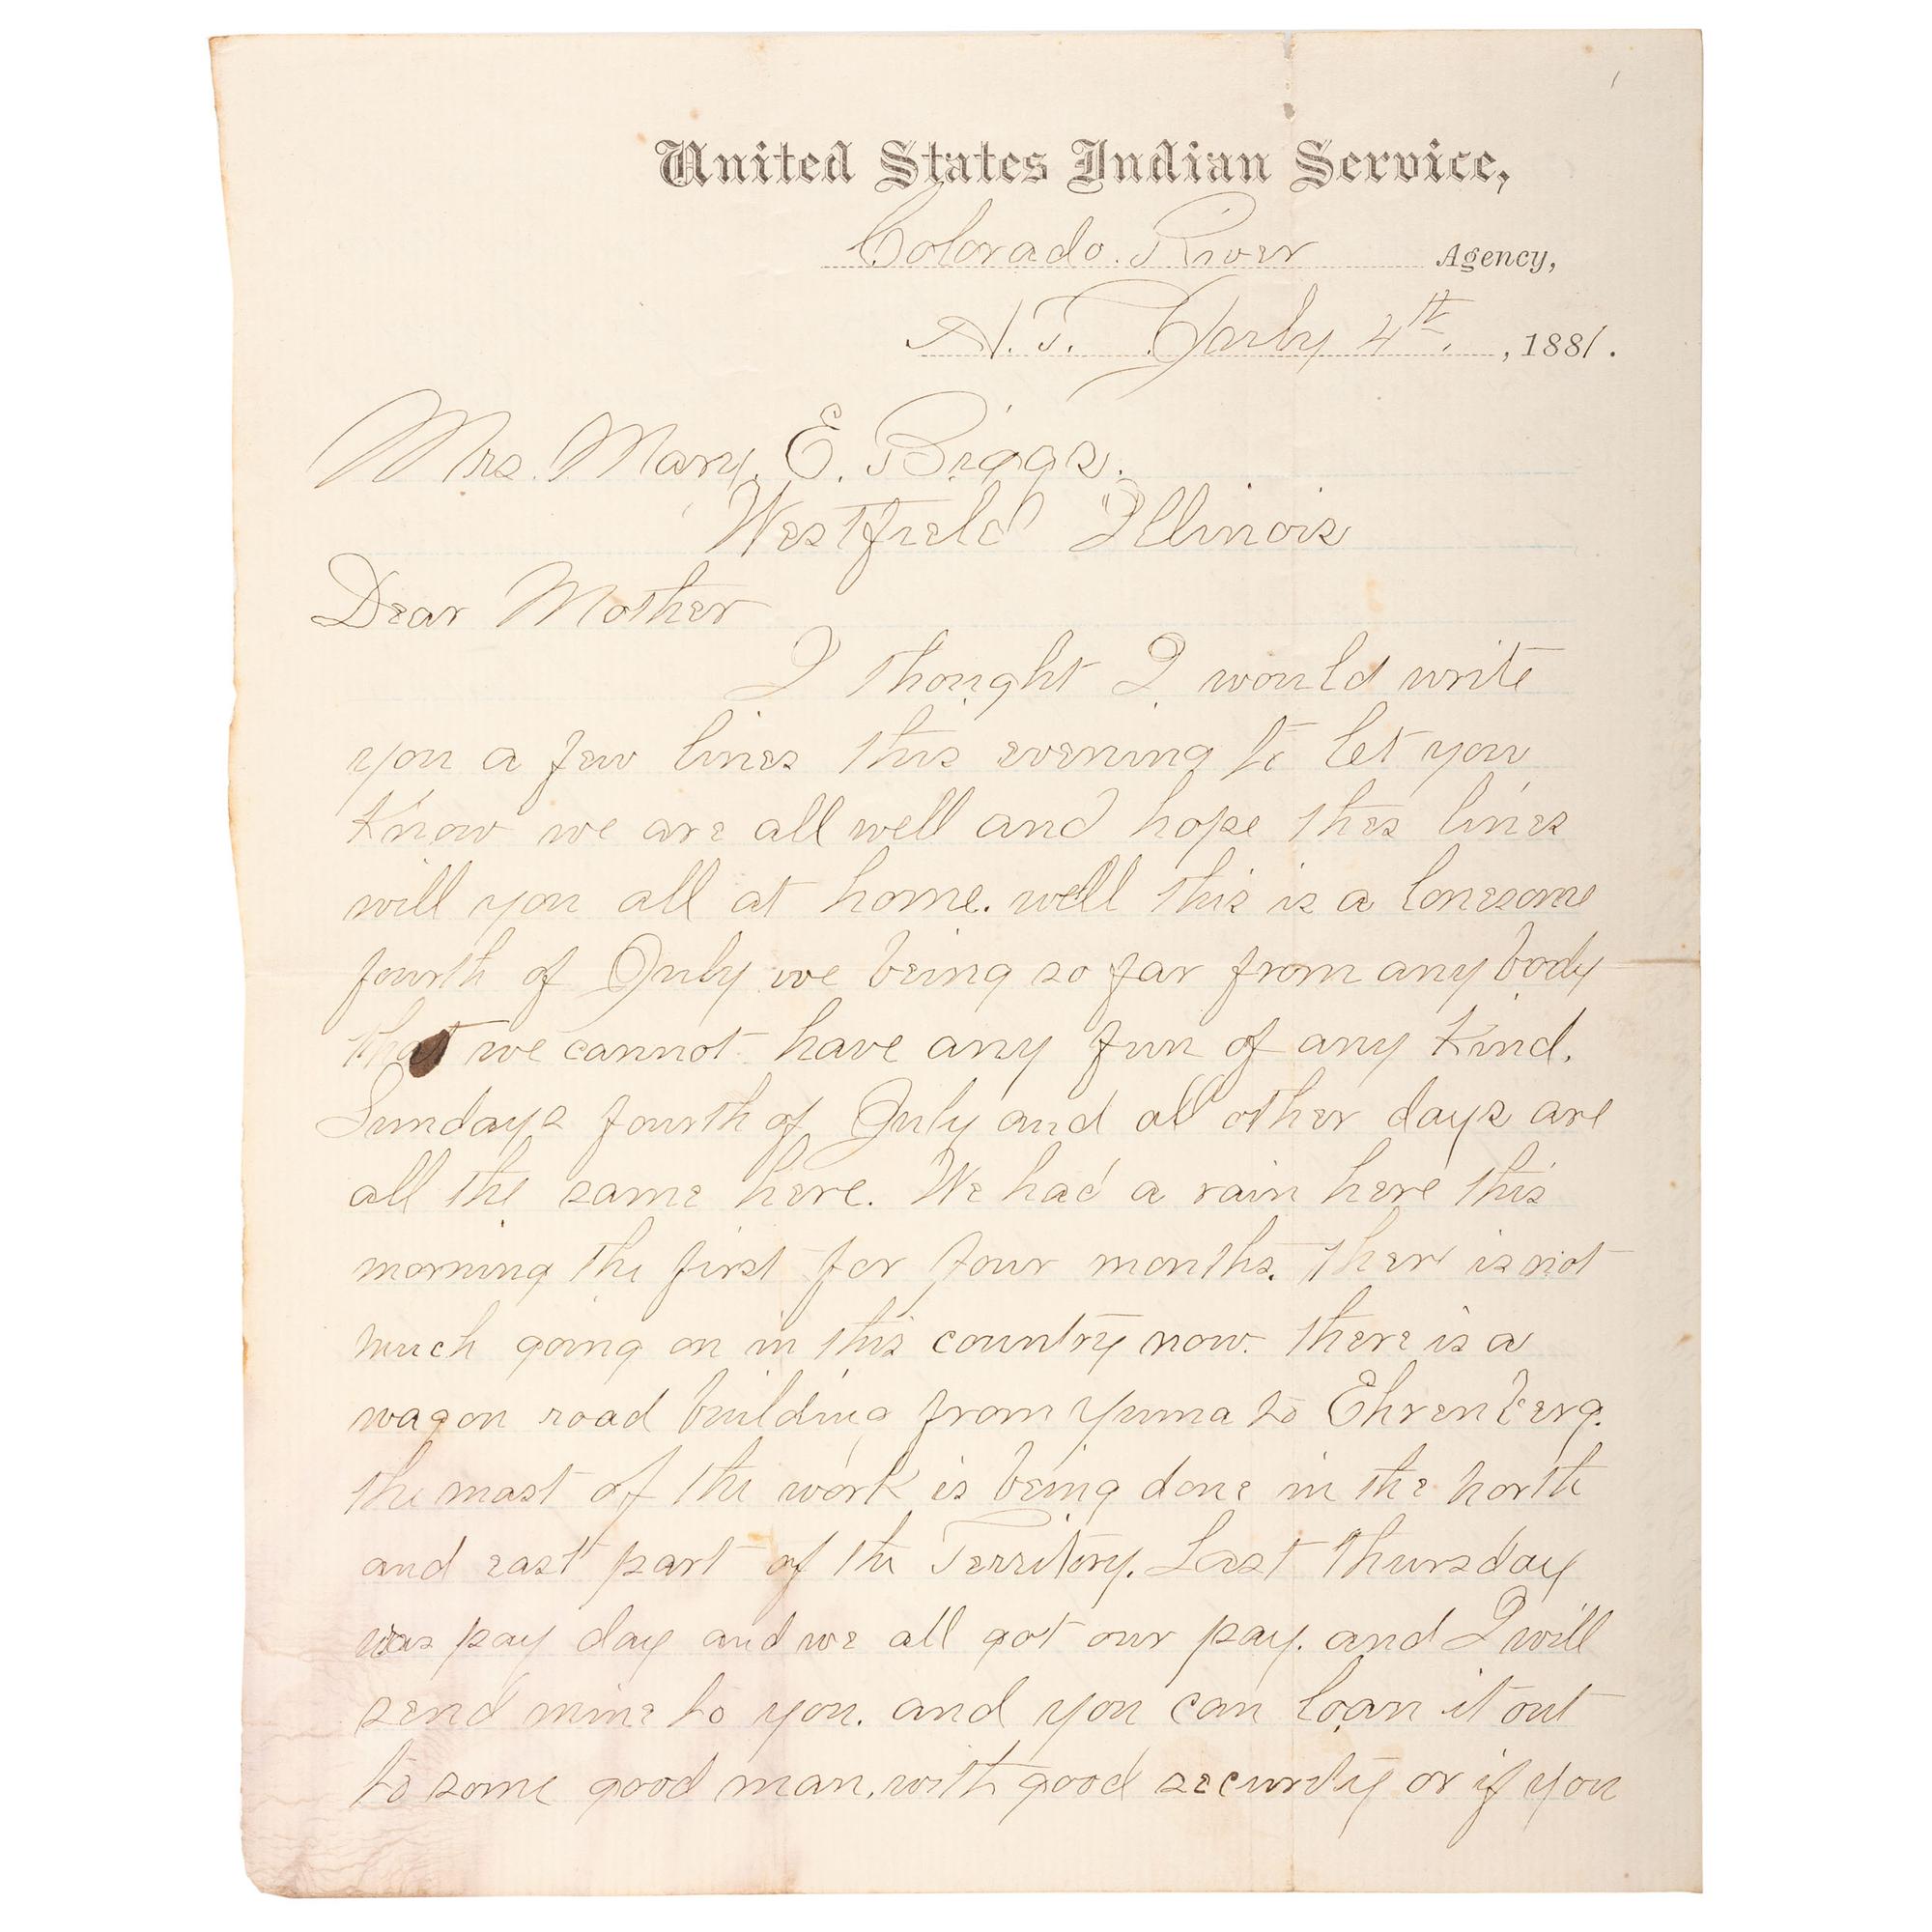 United States Indian Service,
Colorado River Agency,
A. T. July 4th, 1881.
Mrs. Mary E. Biggs.
Westfield Illinois
Dear Mother
I thought I would write
you a few lines this evening to let you
Know we are all well and hope thes lines
will you all at home. well this is a lonesome
fourth of July we being so far from any body
that we cannot have any fun of any Kind.
Sundays fourth of July and all other days are
all the same here. We had a rain here this
morning the first for four months. ther is not
much going on in this country now. there is a
wagon road building from Yuma to Ehrenberg.
the most of the work is being done in the north
and east part of the Territory. Last Thursday
was pay day and we all got our pay. and I will
send mine to you. and you can loan it out
to some good man, with good security or if you